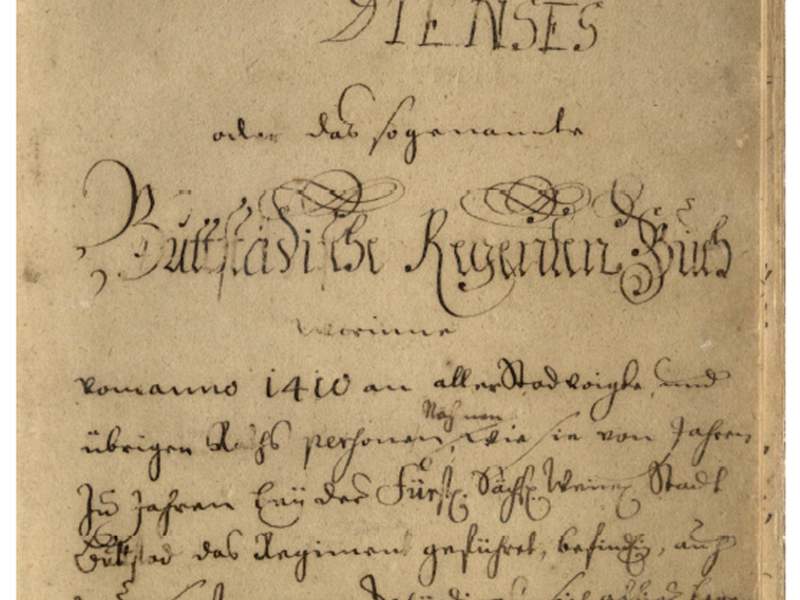 DIENSES
oder das sogenannte
Buttstädtische Regenten Buch
worinne
vom anno 1410 an aller Stadvoigte, und
Nahmen
übrigen Raths personen, wie sie von Jahren
Zu Jahren bey der Fürstl. Sächß. Weim. Stadt
Buttstad das Regiment geführet, befindlich, auch